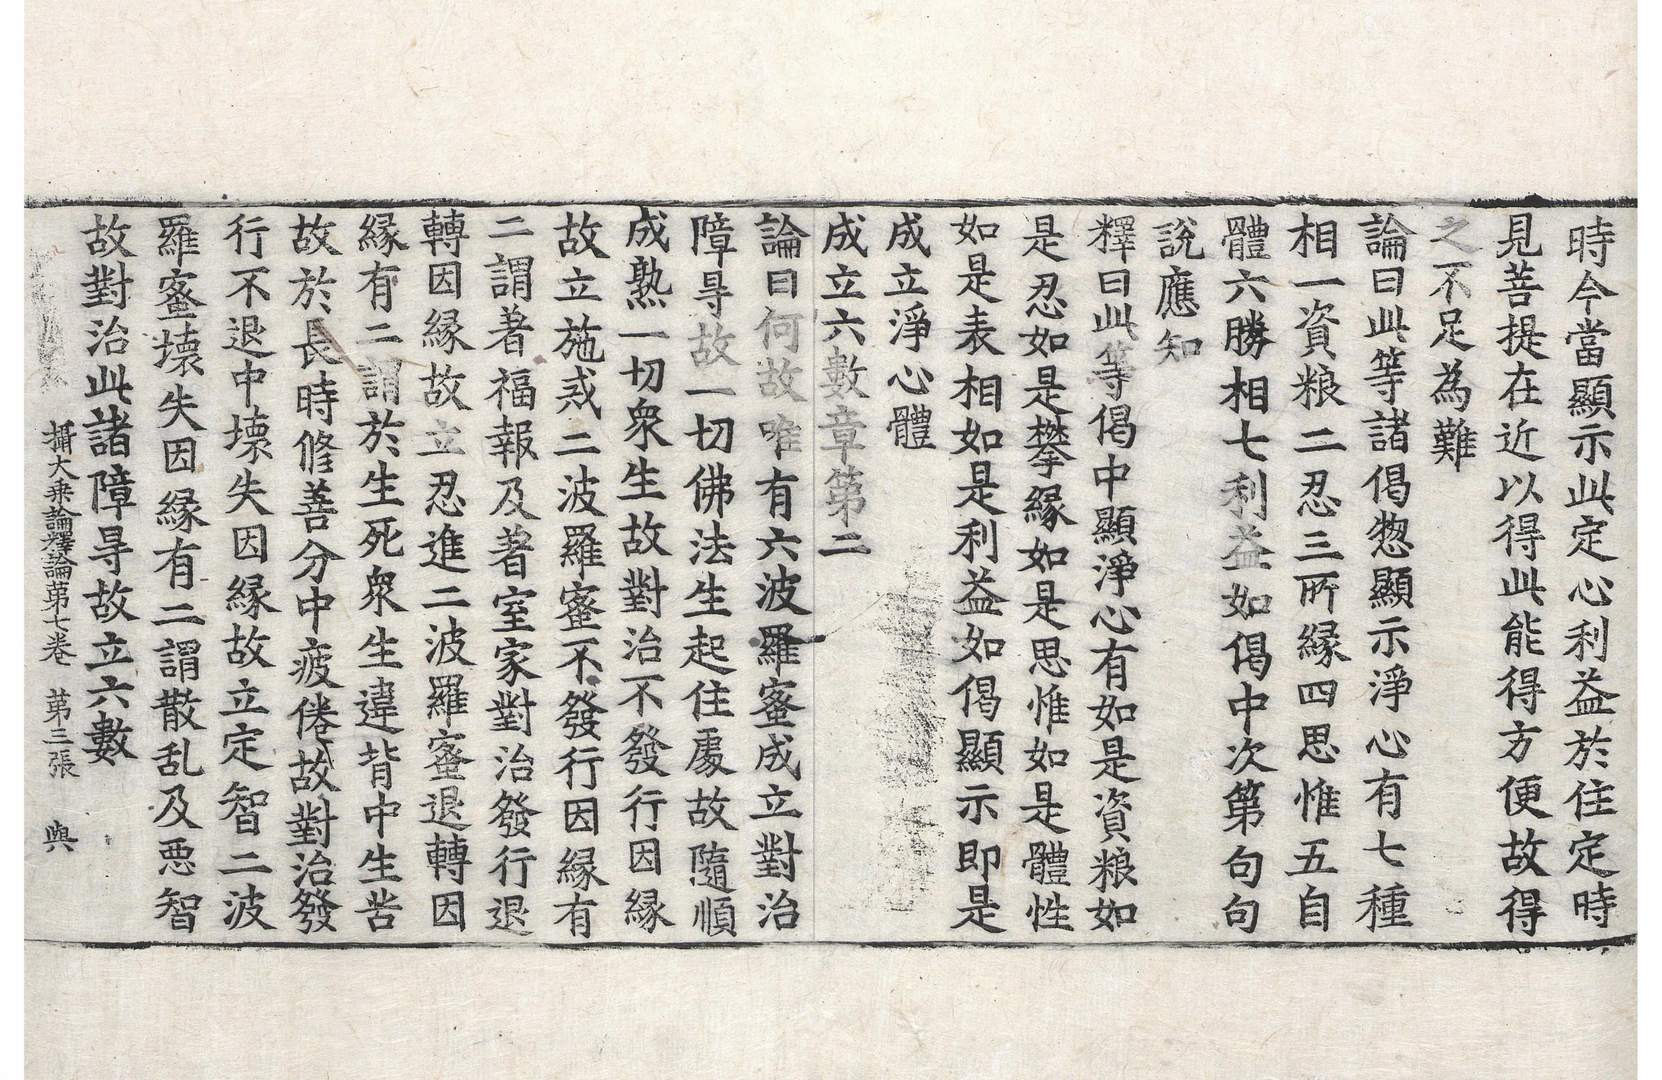 時今當顯示此定心利益於住定時
見菩提在近以得此能得方便故得
之不足為難
論曰此等諸偈惣顯示淨心有七種
相一資粮二忍三所緣四思惟五自
體六勝相七利益如偈中次第句句
說應知
釋曰此等偈中顯淨心有如是資粮如
是忍如是攀緣如是思惟如是體性
如是表相如是利益如偈顯示即是
成立淨心體
成立六數章第二
論曰何故唯有六波羅蜜成立對治
障㝵故一切佛法生起住處故隨順
成熟一切衆生故對治不發行因緣
故立施戒二波羅蜜不發行因緣有
二謂著福報及著室家對治發行退
轉因緣故立忍進二波羅蜜退轉因
緣有二謂於生死衆生違背中生苦
故於長時修善分中疲倦故對治發
行不退中壞失因緣故立定智二波
羅蜜壞失因緣有二謂散乱及惡智
故對治此諸障㝵故立六數
攝大乘論釋論第七卷 第三張 與